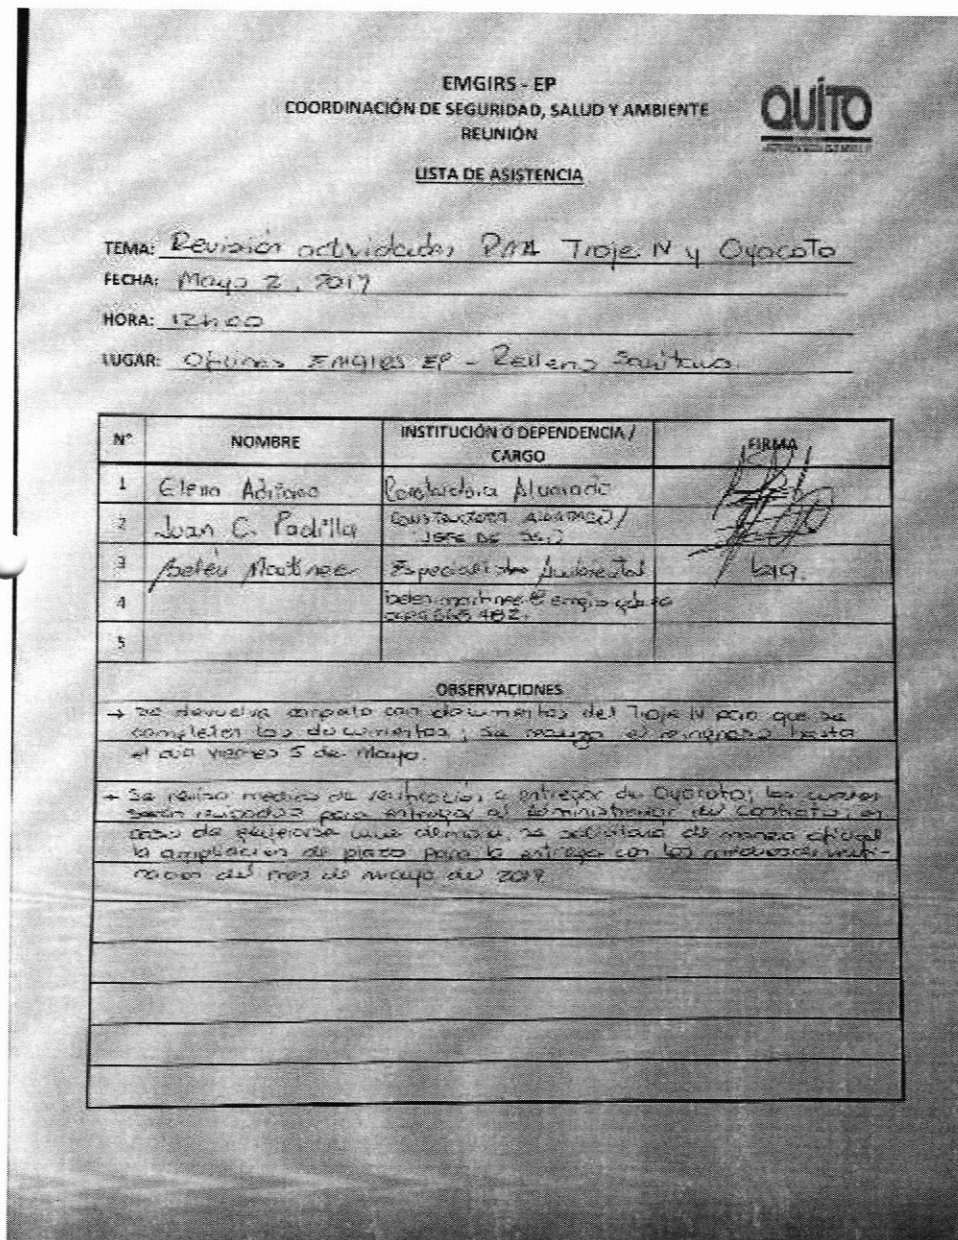 EMGIRS - EP
COORDINACIÓN DE SEGURIDAD, SALUD Y AMBIENTE
REUNIÓN
QUITO
LISTA DE ASISTENCIA
TEMA: Revisión actividades PMA Troje IV y Oyacoto
FECHA: Mayo 2, 2017
HORA: 12h00
LUGAR: Oficinas EMGIRS EP - Relleno Sanitario.
N° NOMBRE INSTITUCIÓN O DEPENDENCIA / CARGO FIRMA
1 Elena Adriano Constructora Alvarado
2 Juan C. Padilla CONSTRUCTORA ALVARADO / JEFE DE
3 Belén Martínez Especialista Ambiental
4
5
OBSERVACIONES
→ Se devuelve carpeta con documentos del Troje IV para que se
completen los documentos; se realiza el reingreso hasta
el día viernes 5 de mayo.
→ Se reviso medios de verificación a entregar de Oyacoto; los cuales
serán revisados para entregar al administrador del contrato; en
caso de generarse una demora, se solicitará de manera oficial
la ampliación de plazo para la entrega con los medios de verifi-
cación del mes de mayo del 2017